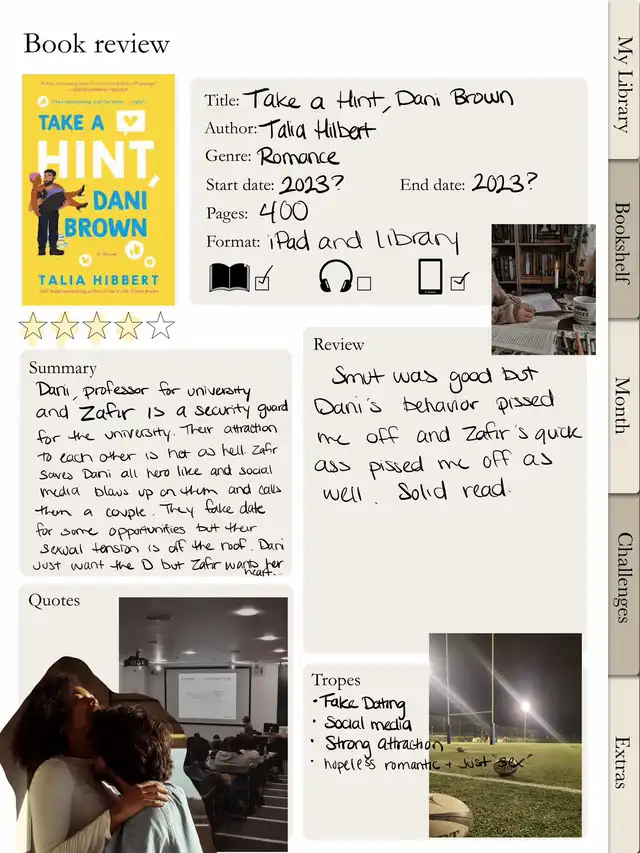 Book review
TAKE A
HINT,
DANI
BROWN
A Novel
TALIA HIBBERT
Title: Take a Hint, Dani Brown
Author: Talia Hilbert
Genre: Romance
Start date: 2023? End date: 2023?
Pages: 400
Format: iPad and library
Summary
Dani, professor for university
and Zafir is a security guard
for the university. Their attraction
to each other is hot as hell. Zafir
saves Dani all hero like and social
media blows up on them and calls
them a couple. They fake date
for some opportunities but their
sexual tension is off the roof. Dani
just want the D but Zafir wants her
heart...
Review
Smut was good but
Dani's behavior pissed
me off and Zafir's quick
ass pissed me off as
well. Solid read.
Quotes
Tropes
• Fake Dating
• Social media
• Strong attraction
• hopeless romantic + just "sex"
My Library
Bookshelf
Month
Challenges
Extras